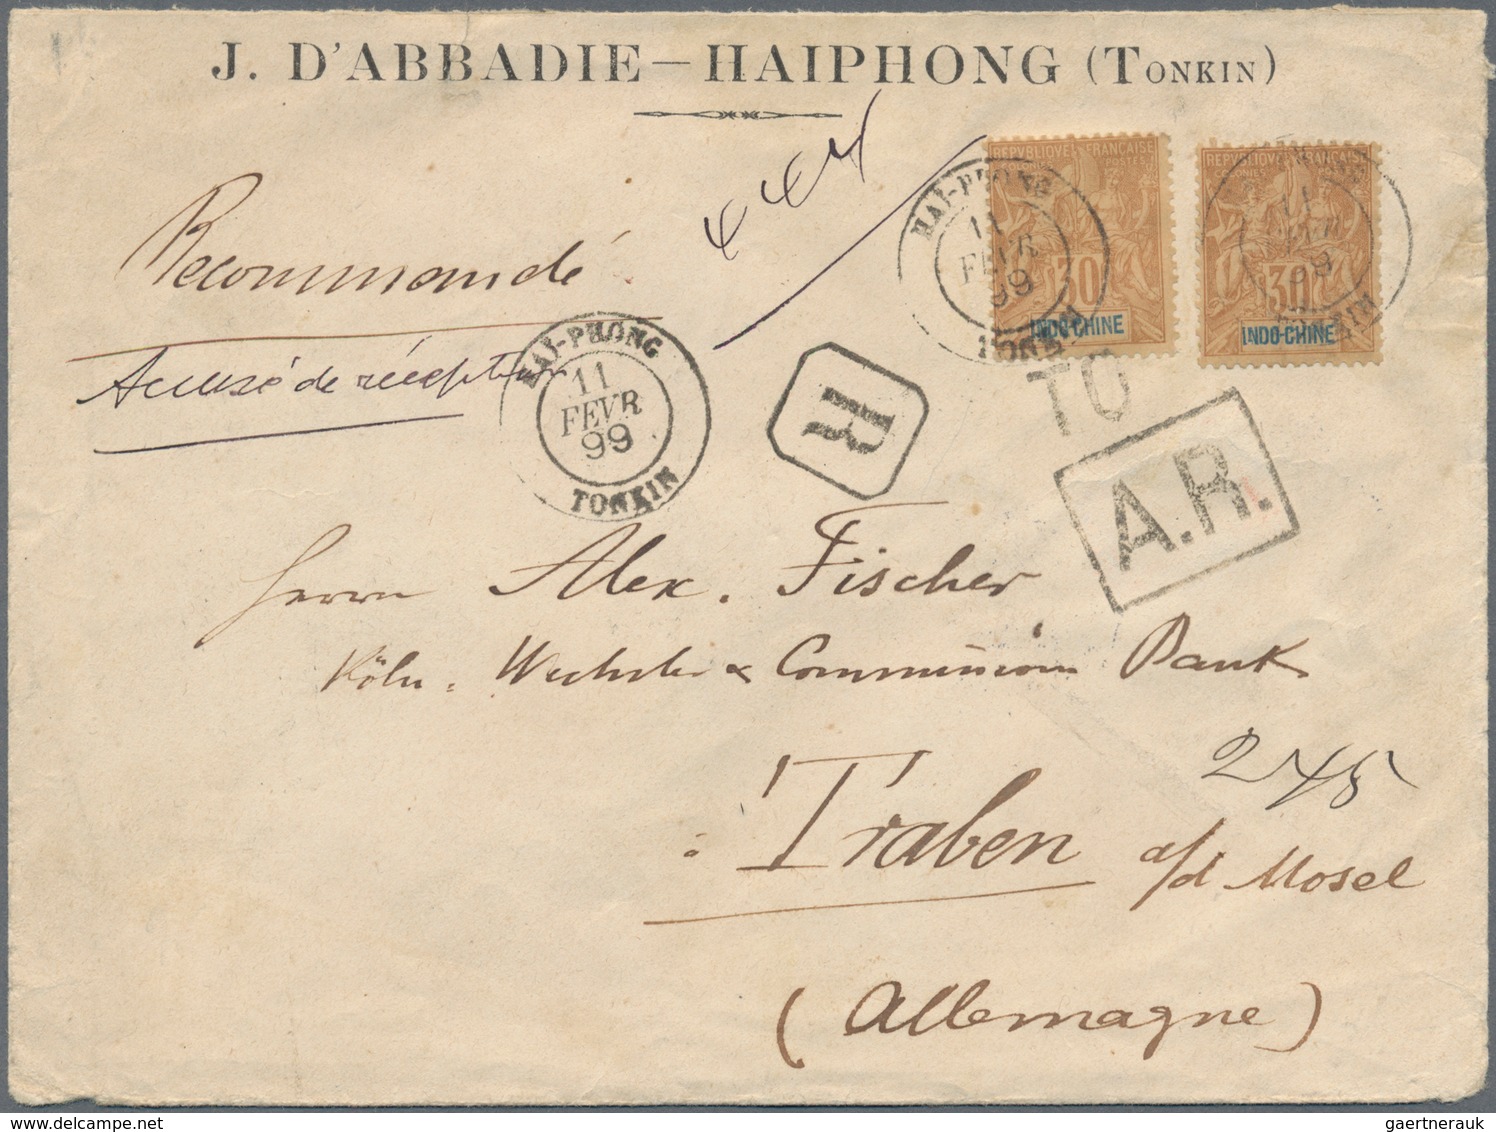 J. D'ABBADIE — HAIPHONG (TONKIN)
Recommandé
Accusé de réception
HAI-PHONG
11
FEVR
99
TONKIN
R
HAI-PHONG
11
FEVR
99
TONKIN
REPVBLIQVE FRANÇAISE
POSTES
30
INDO-CHINE
REPVBLIQVE FRANÇAISE
30
INDO-CHINE
11
FEVR
99
TO
A.R.
Herrn Alex. Fischer
Köln. Wechsler & Commission Bank
245
Traben a/d Mosel
(Allemagne)
gaertnerauk